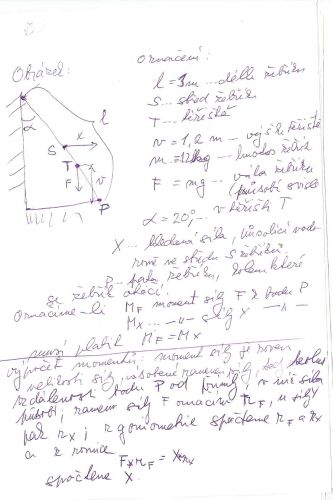 Označení:
Obrázek:
l = 3m ... délka žebříku
S ... střed žebříku
T ... těžiště
v = 1,2 m – výška těžiště
m = 12kg – hmotnost žebříku
F = mg – váha žebříku
(působí svisle
v těžišti T
α = 20°
X ... hledaná síla, působící vodo-
rovně ve středu S žebříku
P – pata žebříku, kolem které
se žebřík otáčí.
Označíme-li M_F moment síly F k bodu P
M_X ... –"– síly X –"–
musí platit M_F = M_X
výpočet momentů: moment síly je roven
velikosti síly, násobené ramenem síly,
vzdáleností bodu P od přímky, v níž síla
působí; rameno síly F označím r_F, u síly
pak r_X; z goniometrie spočteme r_F a r_X
a z rovnice
F * r_F = X * r_X
spočteme X.
α
l
S
x
T
F
v
P